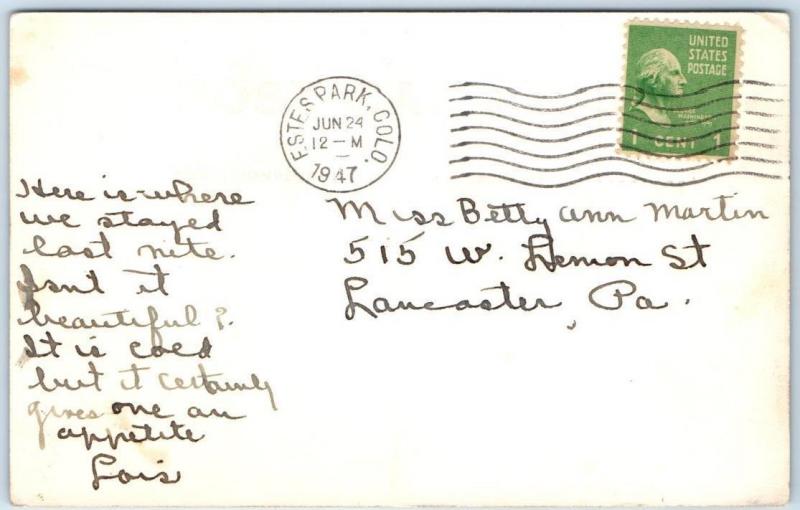 ESTES PARK, COLO.
JUN 24
12-M
1947
UNITED
STATES
POSTAGE
1 CENT 1
Here is where
we stayed
last nite.
Isnt it
beautiful?
It is cold
but it certainly
gives one an
appetite
Lois
Miss Betty Ann Martin
515 W. Lemon St
Lancaster, Pa.